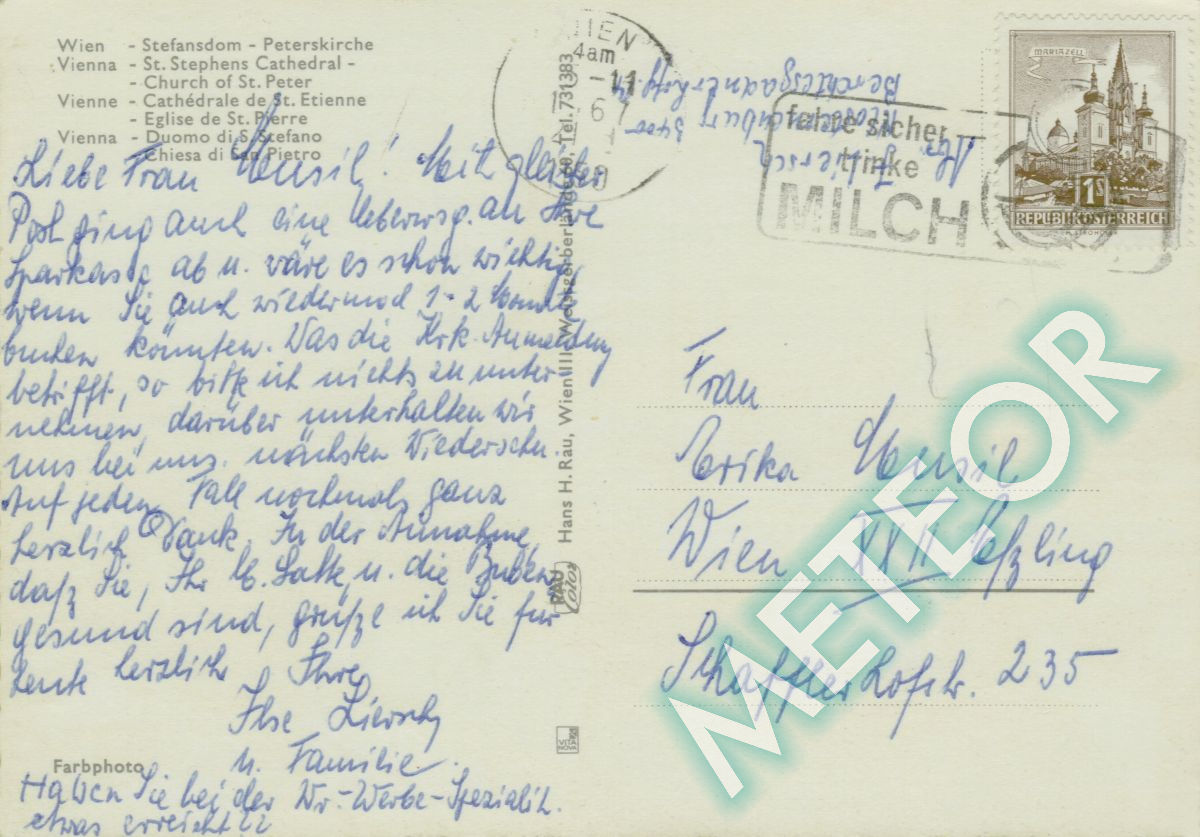 Wien - Stefansdom - Peterskirche
Vienna - St. Stephens Cathedral -
- Church of St. Peter
Vienne - Cathédrale de St. Etienne
- Eglise de St. Pierre
Vienna - Duomo di S. Stefano
Chiesa di San Pietro
Liebe Frau Musil! Mit gleicher
Post ging auch eine Ueberwsg. an Ihre
Sparkasse ab u. wäre es schon wichtig,
wenn Sie auch wiedermal 1-2 Monate
buchen könnten. Was die Krk. Anmeldung
betrifft, so bitte ich nichts zu unter
nehmen, darüber unterhalten wir
uns bei uns. nächsten Wiedersehn.
Auf jeden Fall nochmals ganz
herzlich Dank. In der Annahme,
daß Sie, Ihr lb. Gatte, u. die Buben
gesund sind, grüße ich Sie für
heute herzlich Ihre
Ilse Liersch
u. Familie.
Farbphoto
Haben Sie bei der Wr.-Werbe-Spezialit.
etwas erreicht??
Hans H. Rau, Wien III, Tel. 731383
RAU
Color
VITA
NOVA
WIEN
4am
-11
67
Liersch
3400
Berchtesgaden
fahre sicher
trinke
MILCH
MARIAZELL
1S
REPUBLIK ÖSTERREICH
Frau
Erika Musil
Wien XXII Eßling
Schafflerhofstr. 235
METEOR